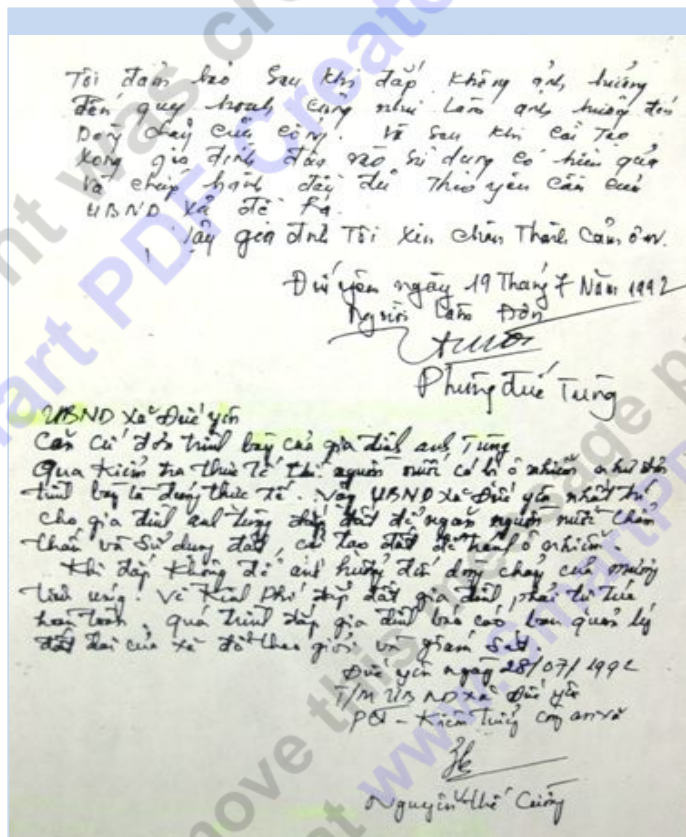 Tôi đảm bảo sau khi đắp không ảnh hưởng
đến quy hoạch cũng như làm ảnh hưởng đến
Dòng chảy của cống. Và sau khi cải tạo
xong gia đình đưa vào sử dụng có hiệu quả
và chấp hành đầy đủ theo yêu cầu của
UBND Xã đề ra.
Vậy gia đình Tôi xin chân Thành Cảm ơn.
Đức yên ngày 19 Tháng 7 Năm 1992
Người làm Đơn
Phùng đức Tùng
UBND xã Đức yên
Căn cứ đơn trình bày của gia đình anh Tùng
Qua kiểm tra thực tế thì nguồn nước có bị ô nhiễm như đơn
trình bày là đúng thực tế. Vậy UBND xã Đức yên nhất trí
cho gia đình anh Tùng đắp đất để ngăn nguồn nước thẩm
thấu và sử dụng đất, cải tạo đất để tránh ô nhiễm.
Khi đắp không để ảnh hưởng đến dòng chảy của mương
Về kinh phí đắp đất gia đình phải tự túc
hoàn toàn, quá trình đắp gia đình báo cáo ban quản lý
đất đai của xã để theo giỏi và giám sát.
Đức yên ngày 28/07/1992
T/M UBND xã Đức yên
PCT - Kiêm trưởng công an xã
Nguyễn thế Cường